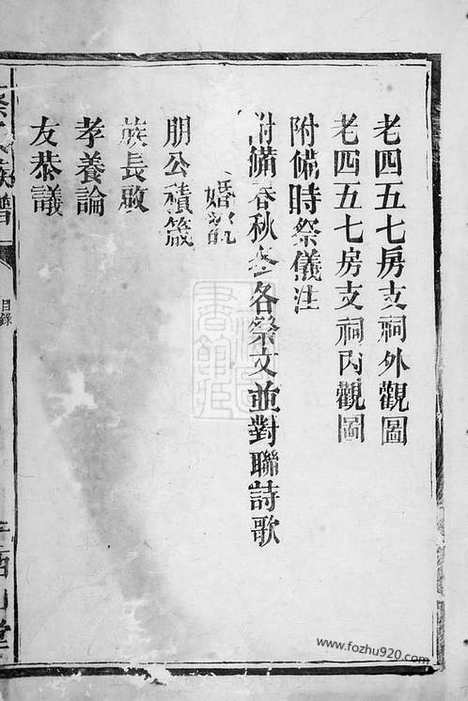 老四五七房支祠外觀圖
老四五七房支祠內觀圖
附備時祭儀注
附備春秋各祭文並對聯詩歌
婚説
朋公積箴
族長政
孝養論
友恭議
族譜
目錄
堂
www.fozhu920.com